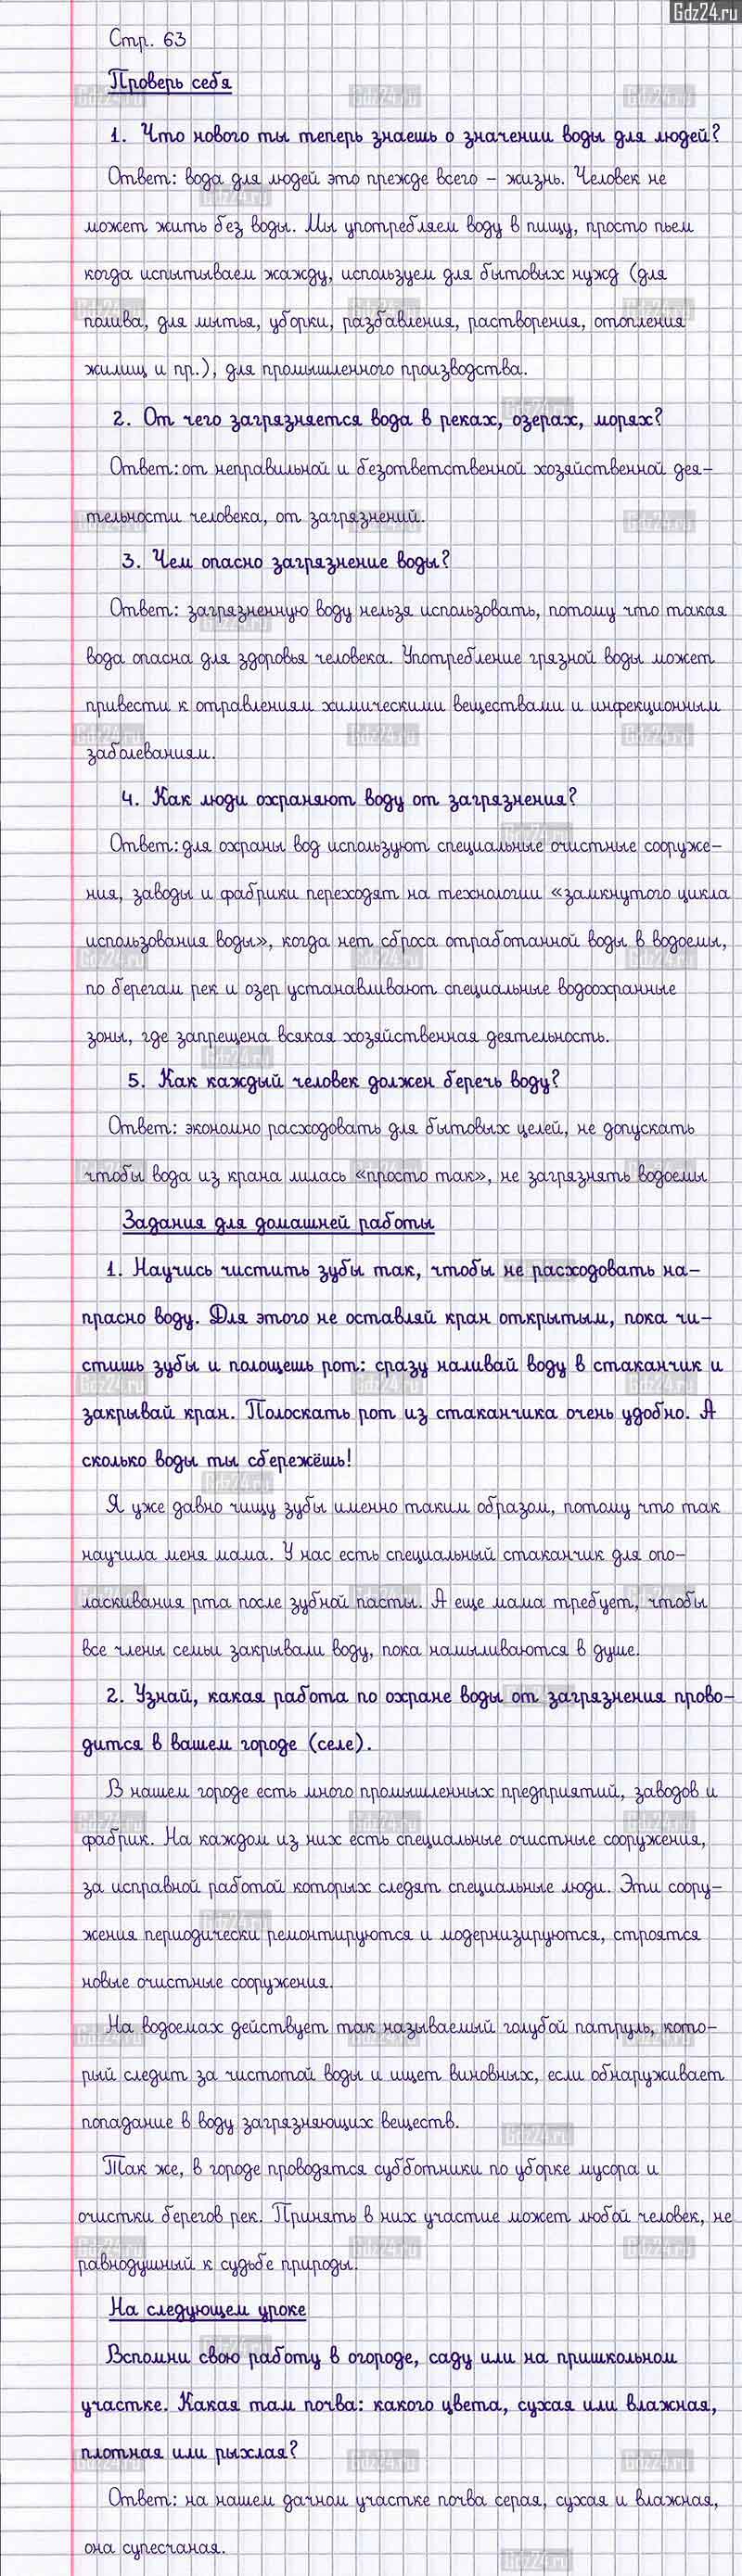 Gdz24.ru
Стр. 63
Проверь себя
1. Что нового ты теперь знаешь о значении воды для людей?
Ответ: вода для людей это прежде всего – жизнь. Человек не
может жить без воды. Мы употребляем воду в пищу, просто пьем
когда испытываем жажду, используем для бытовых нужд (для
полива, для мытья, уборки, разбавления, растворения, отопления
жилищ и пр.), для промышленного производства.
2. От чего загрязняется вода в реках, озерах, морях?
Ответ: от неправильной и безответственной хозяйственной дея-
тельности человека, от загрязнений.
3. Чем опасно загрязнение воды?
Ответ: загрязненную воду нельзя использовать, потому что такая
вода опасна для здоровья человека. Употребление грязной воды может
привести к отравлениям химическими веществами и инфекционным
заболеваниям.
4. Как люди охраняют воду от загрязнения?
Ответ: для охраны вод используют специальные очистные сооруже-
ния, заводы и фабрики переходят на технологии «замкнутого цикла
использования воды», когда нет сброса отработанной воды в водоемы,
по берегам рек и озер устанавливают специальные водоохранные
зоны, где запрещена всякая хозяйственная деятельность.
5. Как каждый человек должен беречь воду?
Ответ: экономно расходовать для бытовых целей, не допускать
чтобы вода из крана лилась «просто так», не загрязнять водоемы
Задания для домашней работы
1. Научись чистить зубы так, чтобы не расходовать на-
прасно воду. Для этого не оставляй кран открытым, пока чи-
стишь зубы и полощешь рот: сразу наливай воду в стаканчик и
закрывай кран. Полоскать рот из стаканчика очень удобно. А
сколько воды ты сбережёшь!
Я уже давно чищу зубы именно таким образом, потому что так
научила меня мама. У нас есть специальный стаканчик для опо-
ласкивания рта после зубной пасты. А еще мама требует, чтобы
все члены семьи закрывали воду, пока намыливаются в душе.
2. Узнай, какая работа по охране воды от загрязнения прово-
дится в вашем городе (селе).
В нашем городе есть много промышленных предприятий, заводов и
фабрик. На каждом из них есть специальные очистные сооружения,
за исправной работой которых следят специальные люди. Эти соору-
жения периодически ремонтируются и модернизируются, строятся
новые очистные сооружения.
На водоемах действует так называемый голубой патруль, кото-
рый следит за чистотой воды и ищет виновных, если обнаруживает
попадание в воду загрязняющих веществ.
Так же, в городе проводятся субботники по уборке мусора и
очистки берегов рек. Принять в них участие может любой человек, не
равнодушный к судьбе природы.
На следующем уроке
Вспомни свою работу в огороде, саду или на пришкольном
участке. Какая там почва: какого цвета, сухая или влажная,
плотная или рыхлая?
Ответ: на нашем дачном участке почва серая, сухая и влажная,
она супесчаная.